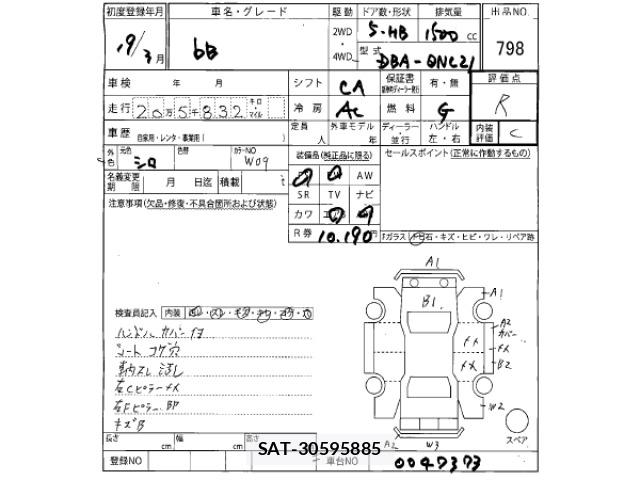 初度登録年月 車名・グレード 駆動 ドア数・形状 排気量 出品NO.
19/3月 bB 2WD 4WD 5-HB 1500cc 798
型式 DBA-QNC21
車検 年 月 シフト CA 保証書 有・無 評価点
走行 20万5千832 キロ・マイル 冷房 AC 燃料 G R
車歴 自家用・レンタ・事業用( ) 定員 人 外車モデル 年 ディーラー・並行 ハンドル 左・右 内装評価 C
外色 元色 シロ 色替 カラーNO W09 装備品(純正品に限る) セールスポイント(正常に作動するもの)
名義変更期限 月 日迄 積載 t AW
注意事項(欠品・修復・不具合箇所および状態) SR TV ナビ
カワ
R券 10,190円 Fガラス 飛石・キズ・ヒビ・ワレ・リペア跡
A1
B1 A1
検査員記入 内装
ハンドルカバー付 A2 カバー
シート コゲ穴 メメ メメ
車内スレ ヨゴレ メメ B2
左Cピラーメメ
左Fピラー W2
キズB スペア
長さ cm 幅 cm 高さ A2 W3
SAT-30595885
登録NO 車台NO 0047373